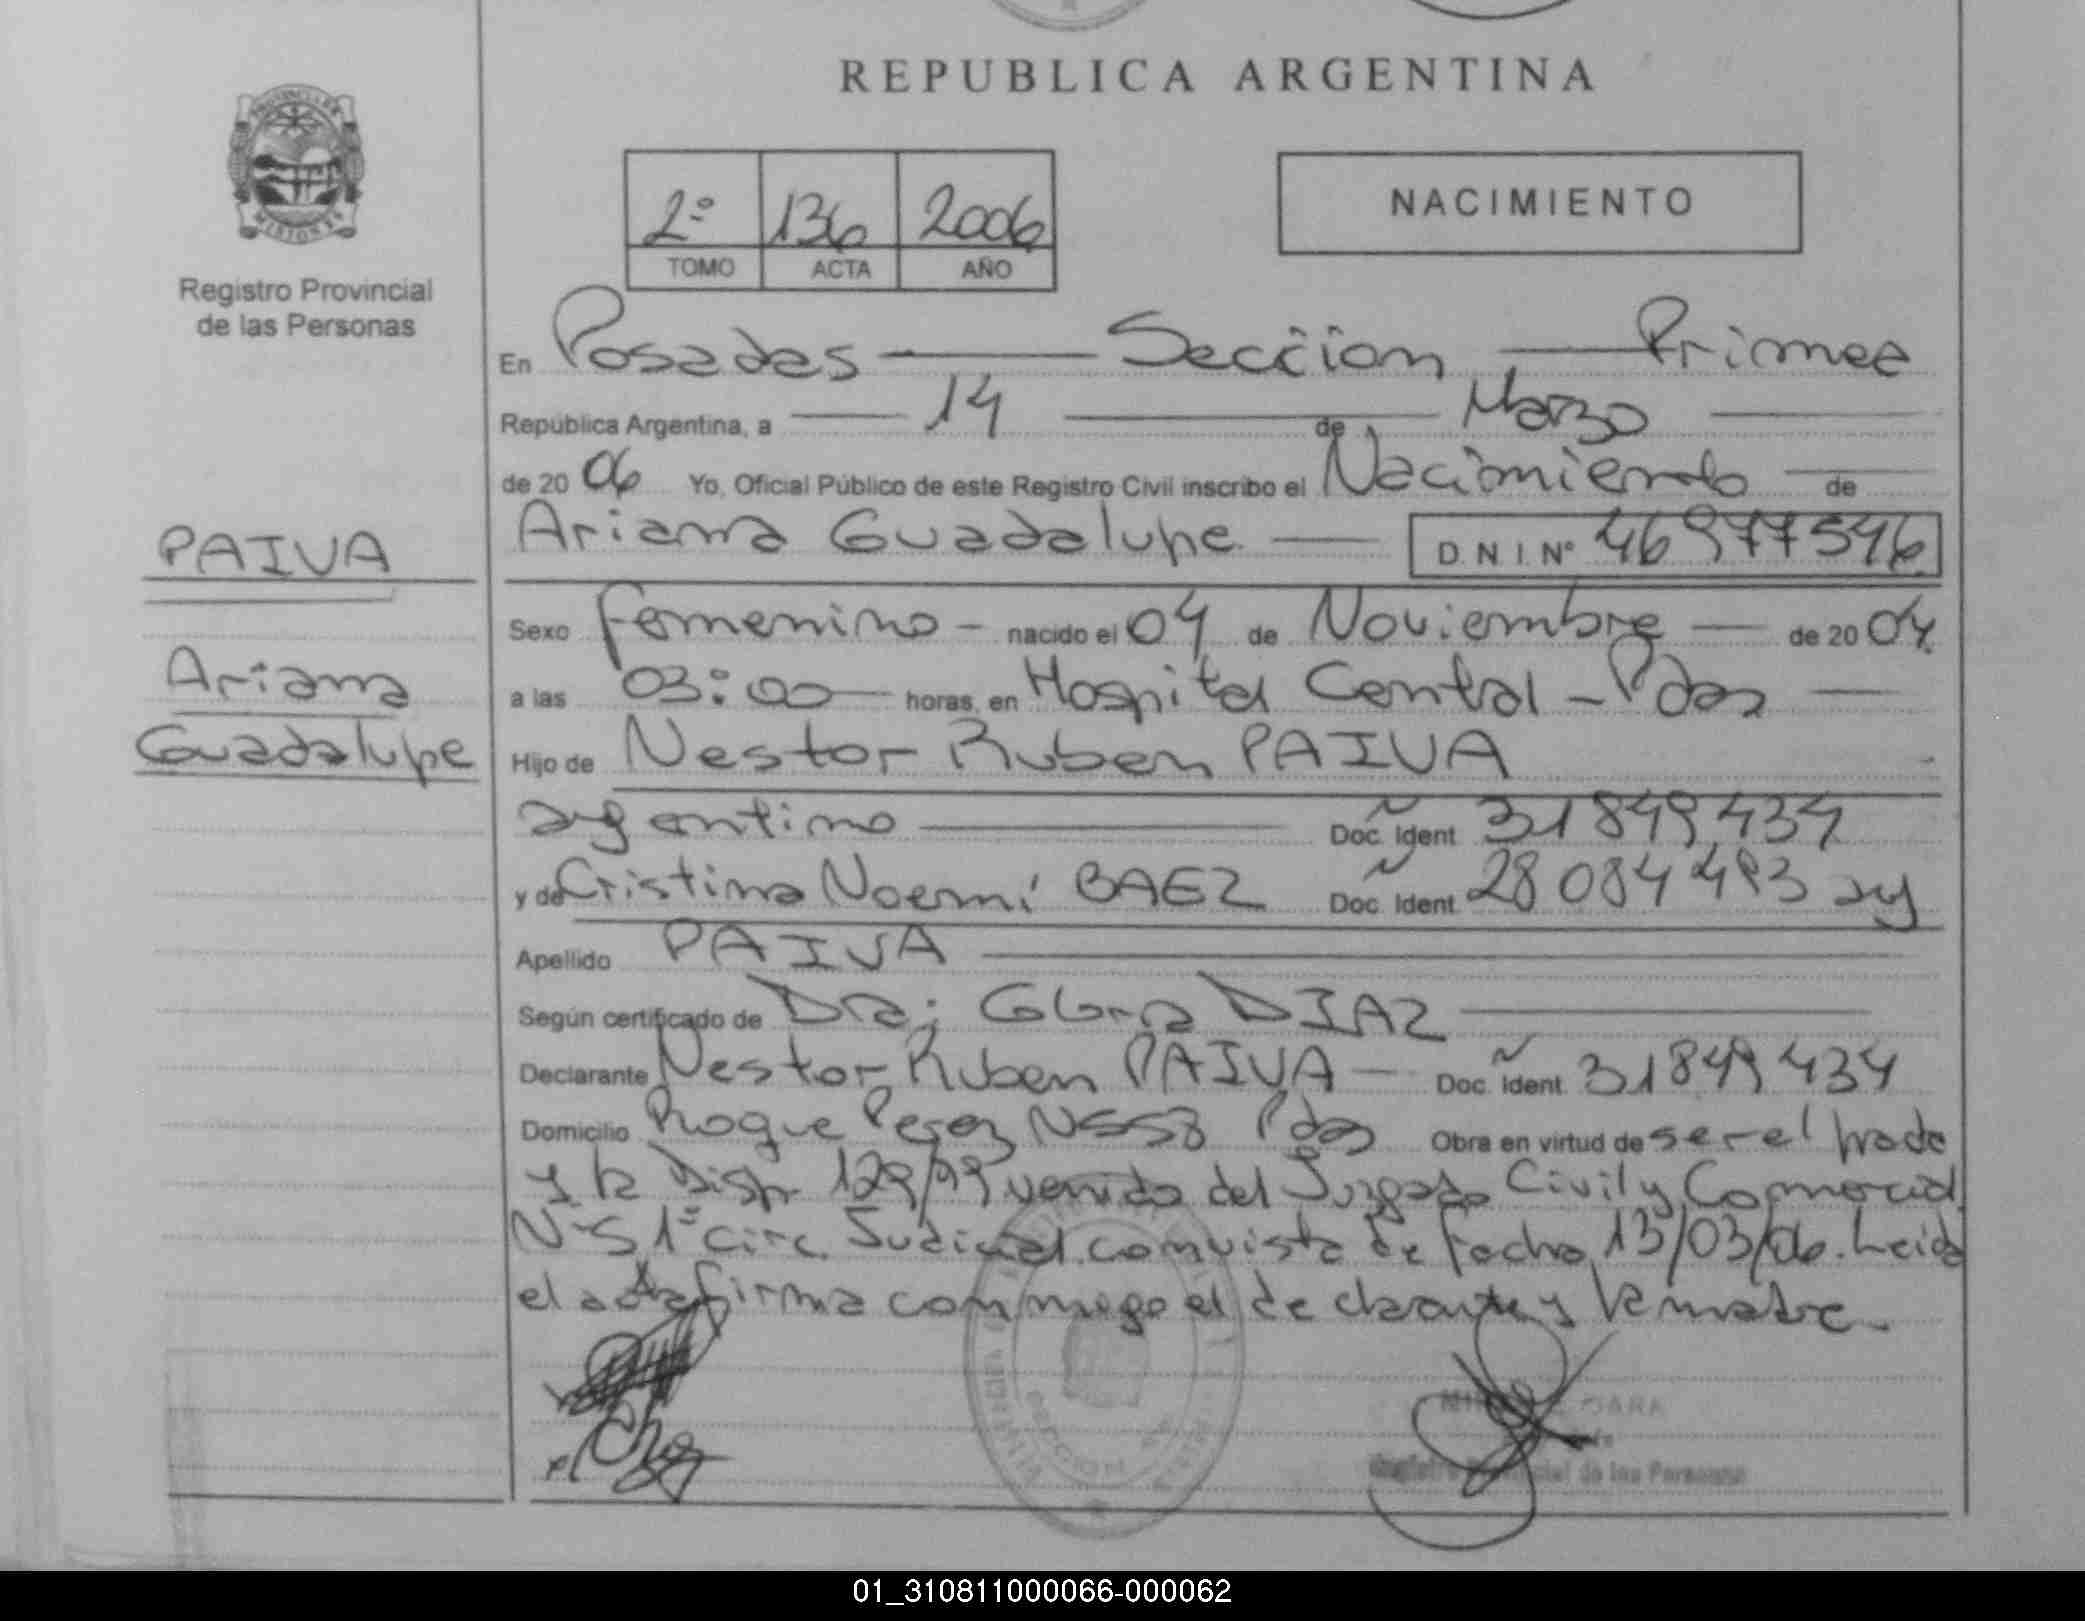 REPUBLICA ARGENTINA
PROVINCIA DE
MISIONES
Registro Provincial
de las Personas
2º 136 2006
TOMO ACTA AÑO
NACIMIENTO
En Posadas Sección Primera
República Argentina, a 14 de Marzo
de 20 06 Yo, Oficial Público de este Registro Civil inscribo el Nacimiento de
PAIVA
Ariana Guadalupe
Ariana Guadalupe D.N.I. Nº 46977546
Sexo femenino - nacido el 04 de Noviembre de 20 04
a las 03:00 horas, en Hospital Central - Pdas
Hijo de Nestor Ruben PAIVA
argentino Doc. Ident. 31849434
y de Cristina Noemí BAEZ Doc. Ident. 28084493 arg
Apellido PAIVA
Según certificado de Dra: DIAZ
Declarante Nestor Ruben PAIVA - Doc. Ident. 31849434
Domicilio Roque Perez Pdas Obra en virtud de ser el padre
y la Disp. 129/99 venido del Juzgado Civil y Comercial
Nº5 1º Circ. Judicial con vista de fecha 13/03/06. Leida
el acta firma conmigo el declarante y la madre.
Registro Provincial de las Personas
01_310811000066-000062